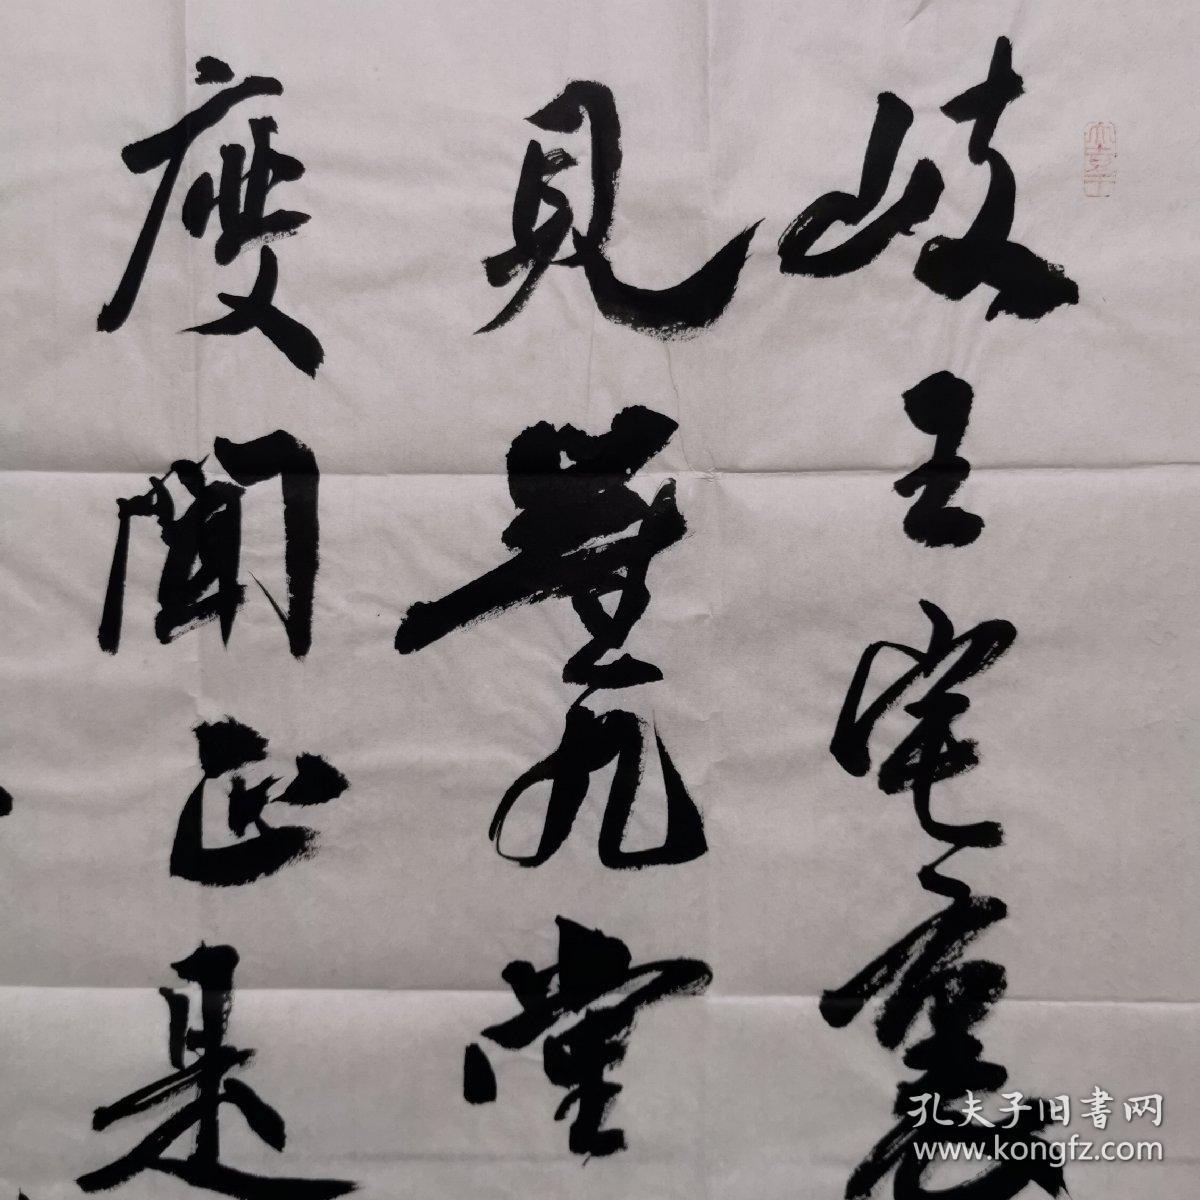 岐王宅裏
見崔九堂
度聞正是
孔夫子旧書网
www.kongfz.com